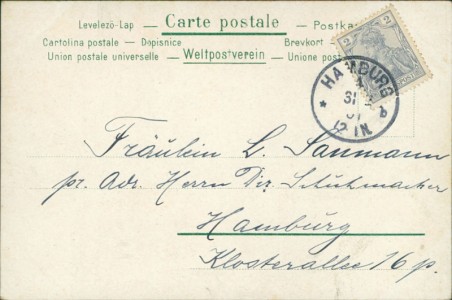 Levelező-Lap — Carte postale — Postka
Cartolina postale — Dopisnice Brevkort
Union postale universelle — Weltpostverein — Unione post
HAMBURG
31
12 IN.
Fräulein L. Saumann
pr. Adr. Herrn Dir. Schuhmacher
Hamburg
Klosterallee 16 p.